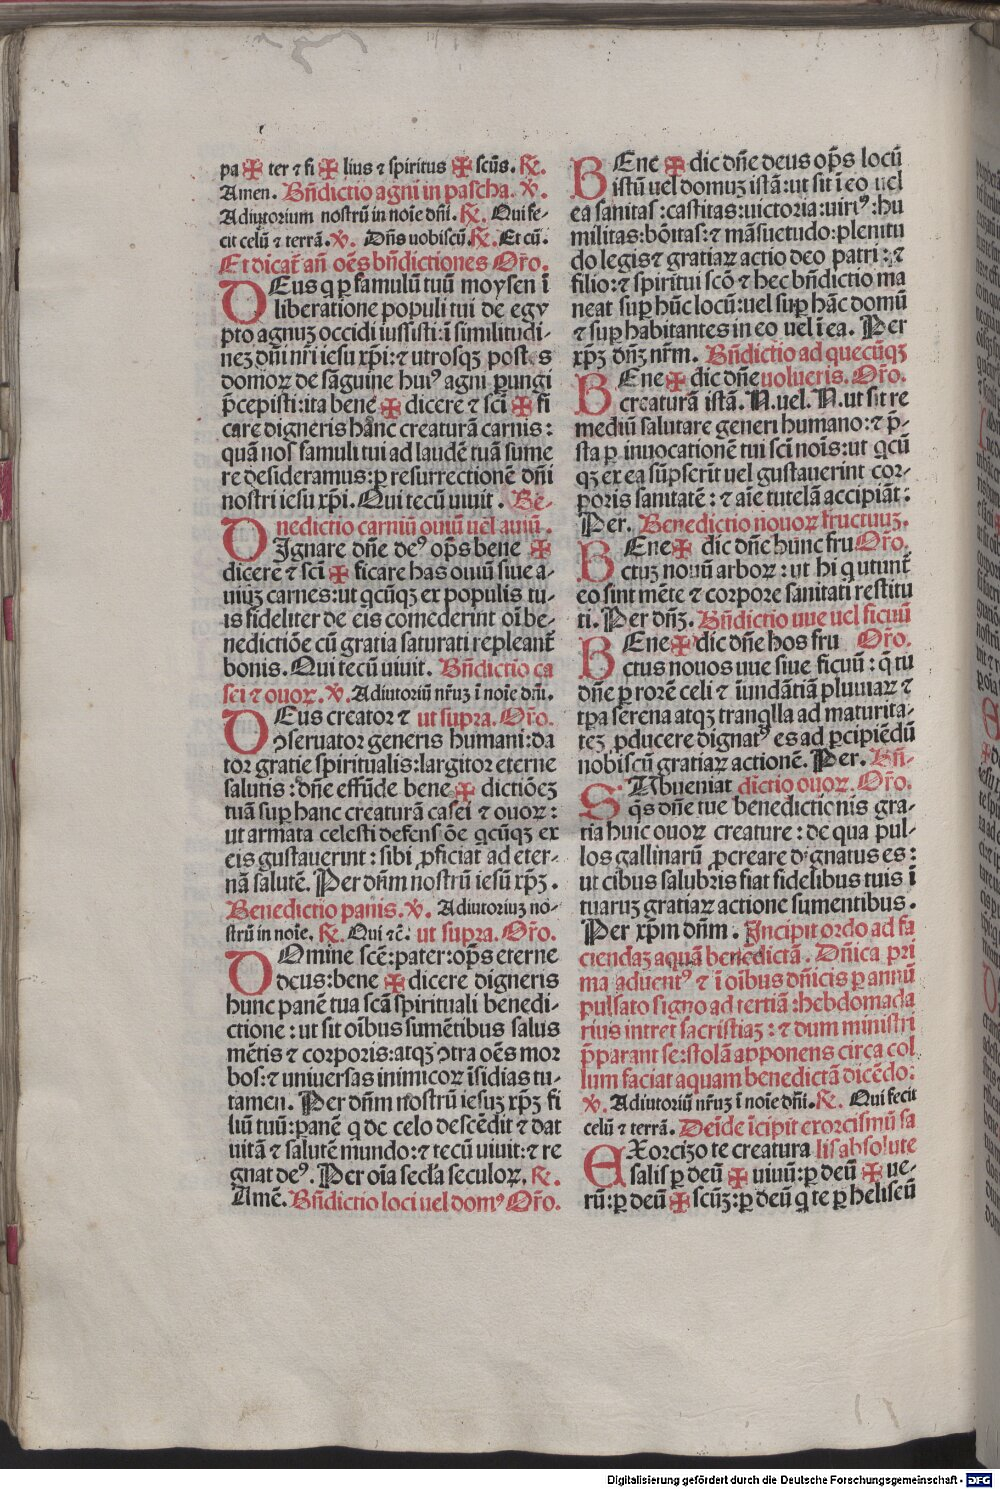 pa ✠ ter ⁊ fi ✠ lius ⁊ spiritus ✠ scūs. ℟.
Amen. Bn̄dictio agni in pascha. ℣.
Adiutorium nostrū in noīe dn̄i. ℟. Qui fe-
cit celū ⁊ terrā. ℣. Dn̄s uobiscū ℟. Et cū.
Et dicat᷑ an̄ oēs bn̄dictiones Oro.
DEus q ꝑ famulū tuū moysen ī
liberatione populi tui de egy
pto agnuꝫ occidi iussisti: ī similitudi-
neꝫ dn̄i nr̄i iesu xp̄i: ⁊ utrosqꝫ postes
domoꝝ de sāguine huiꝰ agni ꝑungi
p̄cepisti: ita bene ✠ dicere ⁊ scī ✠ fi
care digneris hanc creaturā carnis:
quā nos famuli tui ad laudē tuā sume
re desideramus: ꝑ resurrectionē dn̄i
nostri iesu xp̄i. Qui tecū uiuit. Be-
nedictio carniū ouiū uel auiū.
DIgnare dn̄e deꝰ op̄s bene ✠
dicere ⁊ scī ✠ ficare has ouiū siue a-
uiuꝫ carnes: ut qcūqꝫ ex populis tu-
is fideliter de eis comederint oī be-
nedictiōe cū gratia saturati repleant᷑
bonis. Qui tecū uiuit. Bn̄dictio ca
sei ⁊ ouoꝝ. ℣. Adiutoriū nr̄uꝫ ī noīe dn̄i.
DEus creator ⁊ ut supra. Oro.
ↄseruator generis humani: da
tor gratie spiritualis: largitor eterne
salutis: dn̄e effūde bene ✠ dictiōeꝫ
tuā suꝑ hanc creaturā casei ⁊ ouoꝝ:
ut armata celesti defensiōe qcūqꝫ ex
eis gustauerint: sibi ꝓficiat ad eter-
nā salutē. Per dn̄m nostrū iesū xp̄ꝫ.
Benedictio panis. ℣. Adiutoriuꝫ no-
strū in noīe. ℟. Qui ⁊c̄. ut supra. Oro.
DOmine scē: pater: op̄s eterne
deus: bene ✠ dicere digneris
hunc panē tua scā spirituali benedi-
ctione: ut sit oībus sumētibus salus
mētis ⁊ corporis: atqꝫ ↄtra oēs mor
bos: ⁊ uniuersas inimicoꝝ īsidias tu-
tamen. Per dn̄m nostrū iesuꝫ xp̄ꝫ fi
liū tuū: panē q de celo descēdit ⁊ dat
uitā ⁊ salutē mundo: ⁊ tecū uiuit: ⁊ re
gnat deꝰ. Per oīa secl̄a seculoꝝ. ℟.
Amē. Bn̄dictio loci uel domꝰ Oro.
BEne ✠ dic dn̄e deus op̄s locū
istū uel domuꝫ istā: ut sit ī eo uel
ea sanitas: castitas: uictoria: uirꝰ: hu
militas: bōitas: ⁊ māsuetudo: plenitu
do legis ⁊ gratiaꝝ actio deo patri: ⁊
filio: ⁊ spiritui scō ⁊ hec bn̄dictio ma
neat suꝑ hūc locū: uel suꝑ hāc domū
⁊ suꝑ habitantes in eo uel ī ea. Per
xp̄ꝫ dn̄ꝫ nr̄m. Bn̄dictio ad quecūqꝫ
BEne ✠ dic dn̄e uolueris. Oro.
creaturā istā. N. uel. N. ut sit re
mediū salutare generi humano: ⁊ p̄-
sta ꝑ inuocationē tui scī noīs: ut qcū
qꝫ ex ea sūpserit uel gustauerint cor-
ꝑoris sanitatē: ⁊ aīe tutelā accipiāt:
Per. Benedictio nouoꝝ fructuuꝫ.
BEne ✠ dic dn̄e hunc fru Oro.
ctuꝫ nouū arboꝝ: ut hi q utunt᷑
eo sint mēte ⁊ corpore sanitati restitu
ti. Per dn̄ꝫ. Bn̄dictio uue uel ficuū
BEne ✠ dic dn̄e hos fru Oro.
ctus nouos uue siue ficuū: q̄ tu
dn̄e ꝑ rorē celi ⁊ īundātiā pluuiaꝝ ⁊
tp̄a serena atqꝫ tranqlla ad maturita-
teꝫ ꝓducere dignatꝰ es ad ꝑcipiēdū
nobiscū gratiaꝝ actionē. Per. Bn̄-
SUbueniat dictio ouoꝝ. Oro.
q̄s dn̄e tue benedictionis gra-
tia huic ouoꝝ creature: de qua pul-
los gallinarū ꝓcreare dignatus es:
ut cibus salubris fiat fidelibus tuis ī
tuaruꝫ gratiaꝝ actione sumentibus.
Per xp̄m dn̄m. Incipit ordo ad fa
ciendaꝫ aquā benedictā. Dn̄ica pri
ma aduentꝰ ⁊ ī oībus dn̄icis ꝑ annū
pulsato signo ad tertiā: hebdomada
rius intret sacristiaꝫ: ⁊ dum ministri
p̄parant se: stolā apponens circa col
lum faciat aquam benedictā dicēdo:
℣. Adiutoriū nr̄uꝫ ī noīe dn̄i. ℟. Qui fecit
celū ⁊ terrā. Deīde īcipit exorcismū sa
EXorcizo te creatura lis absolute
salis ꝑ deū ✠ uiuū: ꝑ deū ✠ ue-
rū: ꝑ deū ✠ scūꝫ: ꝑ deū q te ꝑ heliseū
Digitalisierung gefördert durch die Deutsche Forschungsgemeinschaft - DFG